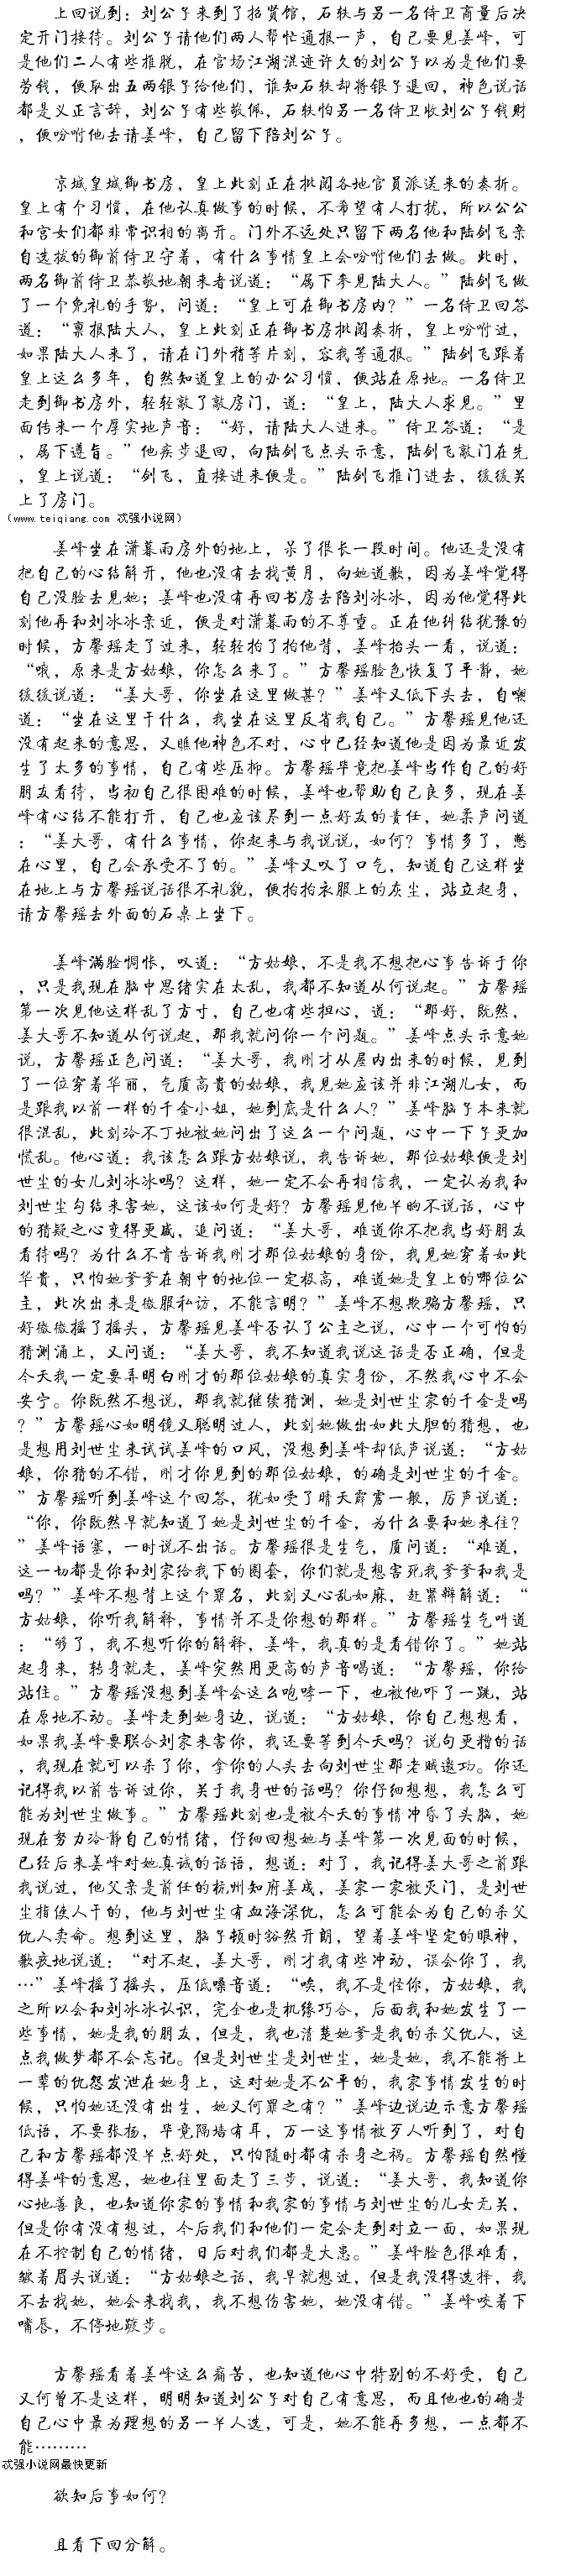 上回说到：刘公子来到了招贤馆，石轶与另一名侍卫商量后决
定开门接待。刘公子请他们两人帮忙通报一声，自己要见姜峰，可
是他们二人有些推脱，在官场江湖混迹许久的刘公子以为是他们要
劳钱，便取出五两银子给他们，谁知石轶却将银子退回，神色说话
都是义正言辞，刘公子有些敬佩，石轶怕另一名侍卫收刘公子钱财
，便吩咐他去请姜峰，自己留下陪刘公子。
京城皇城御书房，皇上此刻正在批阅各地官员派送来的奏折。
皇上有个习惯，在他认真做事的时候，不希望有人打扰，所以公公
和宫女们都非常识相的离开。门外不远处只留下两名他和陆剑飞亲
自选拔的御前侍卫守着，有什么事情皇上会吩咐他们去做。此时，
两名御前侍卫恭敬地朝来者说道：“属下参见陆大人。”陆剑飞做
了一个免礼的手势，问道：“皇上可在御书房内？”一名侍卫回答
道：“禀报陆大人，皇上此刻正在御书房批阅奏折，皇上吩咐过，
如果陆大人来了，请在门外稍等片刻，容我等通报。”陆剑飞跟着
皇上这么多年，自然知道皇上的办公习惯，便站在原地。一名侍卫
走到御书房外，轻轻敲了敲房门，道：“皇上，陆大人求见。”里
面传来一个厚实地声音：“好，请陆大人进来。”侍卫答道：“是
，属下遵旨。”他疾步退回，向陆剑飞点头示意，陆剑飞敲门在先
，皇上说道：“剑飞，直接进来便是。”陆剑飞推门进去，缓缓关
上了房门。
（www.teiqiang.com 忒强小说网）
姜峰坐在潇暮雨房外的地上，呆了很长一段时间。他还是没有
把自己的心结解开，他也没有去找黄月，向她道歉，因为姜峰觉得
自己没脸去见她；姜峰也没有再回书房去陪刘冰冰，因为他觉得此
刻他再和刘冰冰亲近，便是对潇暮雨的不尊重。正在他纠结犹豫的
时候，方馨瑶走了过来，轻轻拍了拍他背，姜峰抬头一看，说道：
“哦，原来是方姑娘，你怎么来了。”方馨瑶脸色恢复了平静，她
缓缓说道：“姜大哥，你坐在这里做甚？”姜峰又低下头去，自嘲
道：“坐在这里干什么，我坐在这里反省我自己。”方馨瑶见他还
没有起来的意思，又瞧他神色不对，心中已经知道他是因为最近发
生了太多的事情，自己有些压抑。方馨瑶毕竟把姜峰当作自己的好
朋友看待，当初自己很困难的时候，姜峰也帮助自己良多，现在姜
峰有心结不能打开，自己也应该尽到一点好友的责任，她柔声问道
：“姜大哥，有什么事情，你起来与我说说，如何？事情多了，憋
在心里，自己会承受不了的。”姜峰又叹了口气，知道自己这样坐
在地上与方馨瑶说话很不礼貌，便拍拍衣服上的灰尘，站立起身，
请方馨瑶去外面的石桌上坐下。
姜峰满脸惆怅，叹道：“方姑娘，不是我不想把心事告诉于你
，只是我现在脑中思绪实在太乱，我都不知道从何说起。”方馨瑶
第一次见他这样乱了方寸，自己也有些担心，道：“那好，既然，
姜大哥不知道从何说起，那我就问你一个问题。”姜峰点头示意她
说，方馨瑶正色问道：“姜大哥，我刚才从屋内出来的时候，见到
了一位穿着华丽，气质高贵的姑娘，我见她应该并非江湖儿女，而
是跟我以前一样的千金小姐，她到底是什么人？”姜峰脑子本来就
很混乱，此刻冷不丁地被她问出了这么一个问题，心中一下子更加
慌乱。他心道：我该怎么跟方姑娘说，我告诉她，那位姑娘便是刘
世尘的女儿刘冰冰吗？这样，她一定不会再相信我，一定认为我和
刘世尘勾结来害她，这该如何是好？方馨瑶见他半晌不说话，心中
的猜疑之心变得更盛，追问道：“姜大哥，难道你不把我当好朋友
看待吗？为什么不肯告诉我刚才那位姑娘的身份，我见她穿着如此
华贵，只怕她爹爹在朝中的地位一定极高，难道她是皇上的哪位公
主，此次出来是微服私访，不能言明？”姜峰不想欺骗方馨瑶，只
好微微摇了摇头，方馨瑶见姜峰否认了公主之说，心中一个可怕的
猜测涌上，又问道：“姜大哥，我不知道我说这话是否正确，但是
今天我一定要弄明白刚才的那位姑娘的真实身份，不然我心中不会
安宁。你既然不想说，那我就继续猜测，她是刘世尘家的千金是吗
？”方馨瑶心如明镜又聪明过人，此刻她做出如此大胆的猜想，也
是想用刘世尘来试试姜峰的口风，没想到姜峰却低声说道：“方姑
娘，你猜的不错，刚才你见到的那位姑娘，的确是刘世尘的千金。
”方馨瑶听到姜峰这个回答，犹如受了晴天霹雳一般，厉声说道：
“你，你既然早就知道了她是刘世尘的千金，为什么要和她来往？
”姜峰语塞，一时说不出话。方馨瑶很是生气，质问道：“难道，
这一切都是你和刘家给我下的圈套，你们就是想害死我爹爹和我是
吗？”姜峰不想背上这个罪名，此刻又心乱如麻，赶紧辩解道：“
方姑娘，你听我解释，事情并不是你想的那样。”方馨瑶生气叫道
：“够了，我不想听你的解释，姜峰，我真的是看错你了。”她站
起身来，转身就走，姜峰突然用更高的声音喝道：“方馨瑶，你给
站住。”方馨瑶没想到姜峰会这么咆哮一下，也被他吓了一跳，站
在原地不动。姜峰走到她身边，说道：“方姑娘，你自己想想看，
如果我姜峰要联合刘家来害你，我还要等到今天吗？说句更糟的话
，我现在就可以杀了你，拿你的人头去向刘世尘那老贼邀功。你还
记得我以前告诉过你，关于我身世的话吗？你仔细想想，我怎么可
能为刘世尘做事。”方馨瑶此刻也是被今天的事情冲昏了头脑，她
现在努力冷静自己的情绪，仔细回想她与姜峰第一次见面的时候，
已经后来姜峰对她真诚的话语，想道：对了，我记得姜大哥之前跟
我说过，他父亲是前任的杭州知府姜成，姜家一家被灭门，是刘世
尘指使人干的，他与刘世尘有血海深仇，怎么可能会为自己的杀父
仇人卖命。想到这里，脑子顿时豁然开朗，望着姜峰坚定的眼神，
歉疚地说道：“对不起，姜大哥，刚才我有些冲动，误会你了，我
…”姜峰摇了摇头，压低嗓音道：“唉，我不是怪你，方姑娘，我
之所以会和刘冰冰认识，完全也是机缘巧合，后面我和她发生了一
些事情，她是我的朋友，但是，我也清楚她爹是我的杀父仇人，这
点我做梦都不会忘记。但是刘世尘是刘世尘，她是她，我不能将上
一辈的仇怨发泄在她身上，这对她是不公平的，我家事情发生的时
候，只怕她还没有出生，她又何罪之有？”姜峰边说边示意方馨瑶
低语，不要张扬，毕竟隔墙有耳，万一这事情被歹人听到了，对自
己和方馨瑶都没半点好处，只怕随时都有杀身之祸。方馨瑶自然懂
得姜峰的意思，她也往里面走了三步，说道：“姜大哥，我知道你
心地善良，也知道你家的事情和我家的事情与刘世尘的儿女无关，
但是你有没有想过，今后我们和他们一定会走到对立一面，如果现
在不控制自己的情绪，日后对我们都是大患。”姜峰脸色很难看，
皱着眉头说道：“方姑娘之话，我早就想过，但是我没得选择，我
不去找她，她会来找我，我不想伤害她，她没有错。”姜峰咬着下
嘴唇，不停地踱步。
方馨瑶看着姜峰这么痛苦，也知道他心中特别的不好受，自己
又何曾不是这样，明明知道刘公子对自己有意思，而且他也的确是
自己心中最为理想的另一半人选，可是，她不能再多想，一点都不
能………
忒强小说网最快更新
欲知后事如何？
且看下回分解。